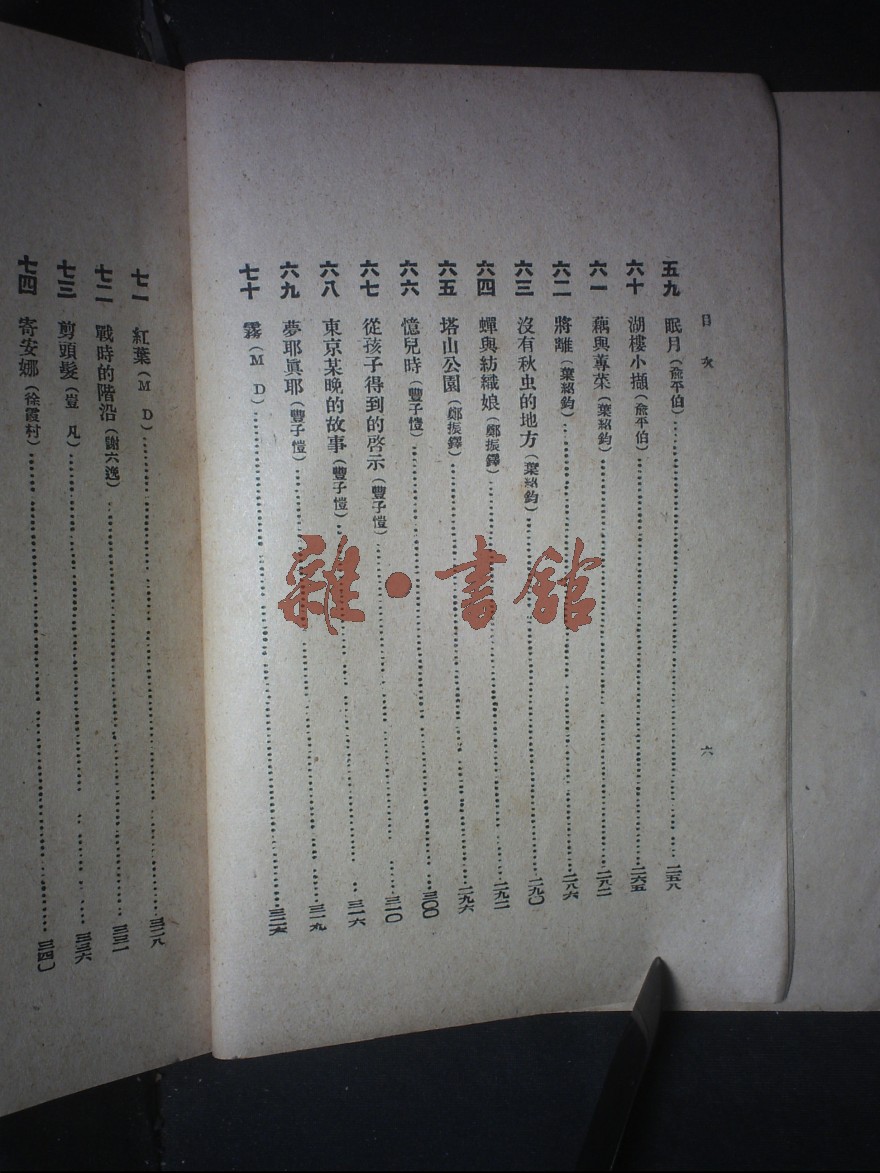 目次
六
五九 眠月(俞平伯)……二五八
六十 湖樓小擷(俞平伯)……二六五
六一 藕與蓴菜(葉紹鈞)……二八二
六二 將離(葉紹鈞)……二八六
六三 沒有秋虫的地方(葉紹鈞)……二九〇
六四 蟬與紡織娘(鄭振鐸)……二九二
六五 塔山公園(鄭振鐸)……二九六
六六 憶兒時(豐子愷)……三〇〇
六七 從孩子得到的啓示(豐子愷)……三一〇
六八 東京某晚的故事(豐子愷)……三一六
六九 夢耶眞耶(豐子愷)……三一九
七十 霧(M D)……三二六
七一 紅葉(M D)……三二八
七二 戰時的階沿(謝六逸)……三三一
七三 剪頭髮(豈凡)……三三六
七四 寄安娜(徐霞村)……三四〇
雜·書館